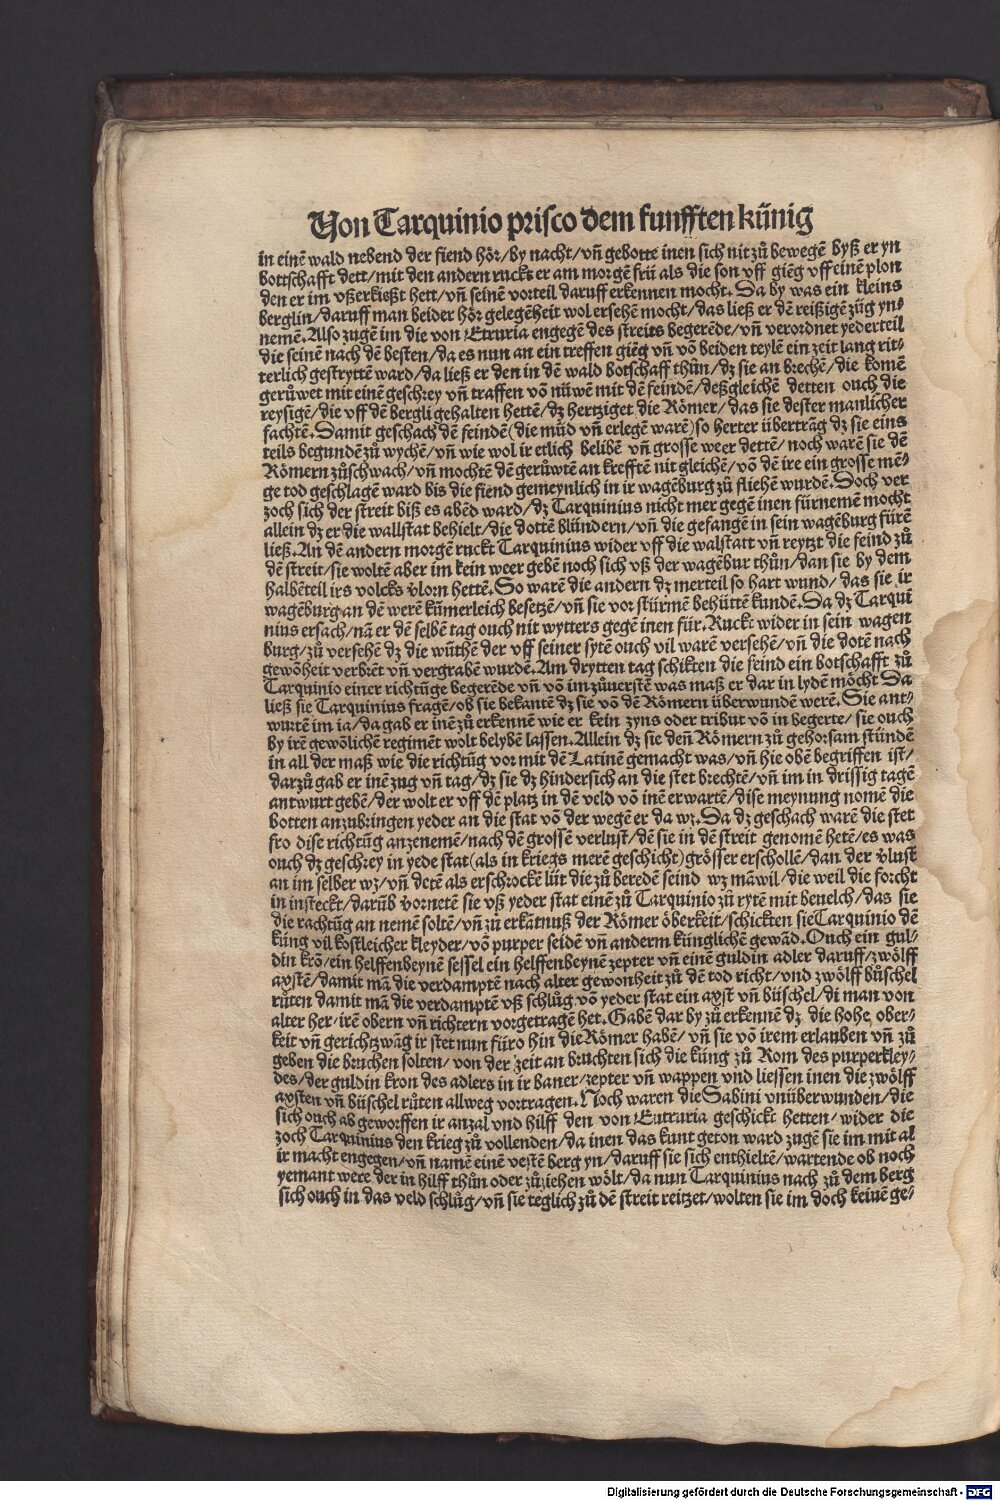 Von Tarquinio prisco dem funfften künig
in einē wald nebend der fiend hör/by nacht/vñ gebotte inen sich nit zů bewegē byß er yn
bottschafft dett/mit den andern ruckt er am morgē frü als die son vff giēg vff einē plon
den er im vßerkießt hett/vñ seinē vorteil daruff erkennen mocht. Da by was ein kleins
berglin/daruff man beider hör gelegēheit wol ersehē mocht/das ließ er dē reißigē züg yn⸗
nemē. Also zugē im die von Etruria engegē des streits begerēde/vñ verordnet yederteil
die seinē nach dē besten/da es nun an ein treffen giēg vñ vō beiden teylē ein zeit lang rit⸗
terlich gestryttē ward/da ließ er den in dē wald botschaff thůn/dz sie an brechē/die komē
gerůwet mit einē geschrey vñ traffen vō nüwē mit dē feindē/deßgleichē detten ouch die
reysigē/die vff dē bergli gehalten hettē/dz hertziget die Römer/das sie dester manlicher
fachtē. Damit geschach dē feindē (die müd vñ erlegē warē) so herter übertrãg dz sie eins
teils begundē zů wychē/vñ wie wol ir etlich belibē vñ grosse weer dettē/noch warē sie dē
Römern zůschwach/vñ mochtē dē gerůwtē an krefftē nit gleichē/vō dē ire ein grosse mē⸗
ge tod geschlagē ward bis die fiend gemeynlich in ir wagēburg zů fliehē wurdē. Doch ver
zoch sich der streit biß es abēd ward/dz Tarquinius nicht mer gegē inen fürnemē mocht
allein dz er die wallstat behielt/die dottē blündern/vñ die gefangē in sein wagēburg fürē
ließ. An dē andern morgē ruckt Tarquinius wider vff die walstatt vñ reytzt die feind zů
dē streit/sie woltē aber im kein weer gebē noch sich vß der wagēbur thůn/dan sie by dem
halbēteil irs volcks v̄lorn hettē. So warē die andern dz merteil so hart wund/das sie ir
wagēburg an dē werē kümerleich besetzē/vñ sie vor stürmē behüttē kundē. Da dz Tarqui
nius ersach/nã er dē selbē tag ouch nit wytters gegē inen für. Ruckt wider in sein wagen
burg/zů versehē dz die wüthē der vff seiner sytē ouch vil warē versehē/vñ die dotē nach
gewōheit verbrēt vñ vergrabē wurdē. Am drytten tag schikten die feind ein botschafft zů
Tarquinio einer richtũge begerēde vñ vō im zůuerstē was maß er dar in lydē möcht Da
ließ sie Tarquinius fragē/ob sie bekantē dz sie vō dē Römern überwundē werē. Sie ant⸗
wurtē im ia/da gab er inē zů erkennē wie er kein zyns oder tribut vō in begerte/sie ouch
by irē gewōlichē regimēt wolt belybē lassen. Allein dz sie deñ Römern zů gehorsam stündē
in all der maß wie die richtũg vor mit dē Latinē gemacht was/vñ hie obē begriffen ist/
darzů gab er inē zug vñ tag/dz sie dz hindersich an die stet brechtē/vñ im in drissig tagē
antwurt gebē/der wolt er vff dē platz in dē veld vō inē erwartē/dise meynung nomē die
botten anzubringen yeder an die stat vō der wegē er da wz. Da dz geschach warē die stet
fro dise richtũg anzenemē/nach dē grossē verlust/dē sie in dē streit genomē hetē/es was
ouch dz geschrey in yede stat (als in kriegs merē geschicht) grösser erschollē/dan der v̄lust
an im selber wz/vñ detē als erschrockē lüt die zů beredē seind wz mã wil/die weil die forcht
in insteckt/darũb v̄ornetē sie vß yeder stat einē zů Tarquinio zů rytē mit beuelch/das sie
die rachtũg an nemē soltē/vñ zů erkãtnuß der Römer öberkeit/schickten sie Tarquinio dē
küng vil kostleicher kleyder/vō purper seidē vñ anderm künglichē gewãd. Ouch ein gul⸗
din krō/ein helffenbeynē sessel ein helffenbeynē zepter vñ einē guldin adler daruff/zwölff
axstē/damit mã die verdamptē nach alter gewonheit zů dē tod richt/vnd zwölff büschel
růten damit mã die verdamptē vß schlůg vō yeder stat ein axst vñ büschel/di man von
alter her/irē obern vñ richtern vorgetragē het. Gabē dar by zů erkennē dz die hohe ober⸗
keit vñ gerichtzwãg ir stet nun füro hin die Römer habē/vñ sie vō irem erlauben vñ zů
geben die bruchen solten/von der zeit an bruchten sich die küng zů Rom des purperkley⸗
des/der guldin kron des adlers in ir baner/zepter vñ wappen vnd liessen inen die zwölff
axsten vñ büschel růten allweg vortragen. Noch waren die Sabini vnüberwunden/die
sich ouch ab geworffen ir anzal vnd hilff den von Eutruria geschickt hetten/wider die
zoch Tarquinius den krieg zů vollenden/da inen das kunt geton ward zugē sie im mit al
ir macht engegen/vñ namē einē vestē berg yn/daruff sie sich enthieltē/wartende ob noch
yemant were der in hilff thůn oder zůziehen wölt/da nun Tarquinius nach zů dem berg
sich ouch in das veld schlůg/vñ sie teglich zů dē streit reitzet/wolten sie im doch keinē ge⸗
Digitalisierung gefördert durch die Deutsche Forschungsgemeinschaft - DFG